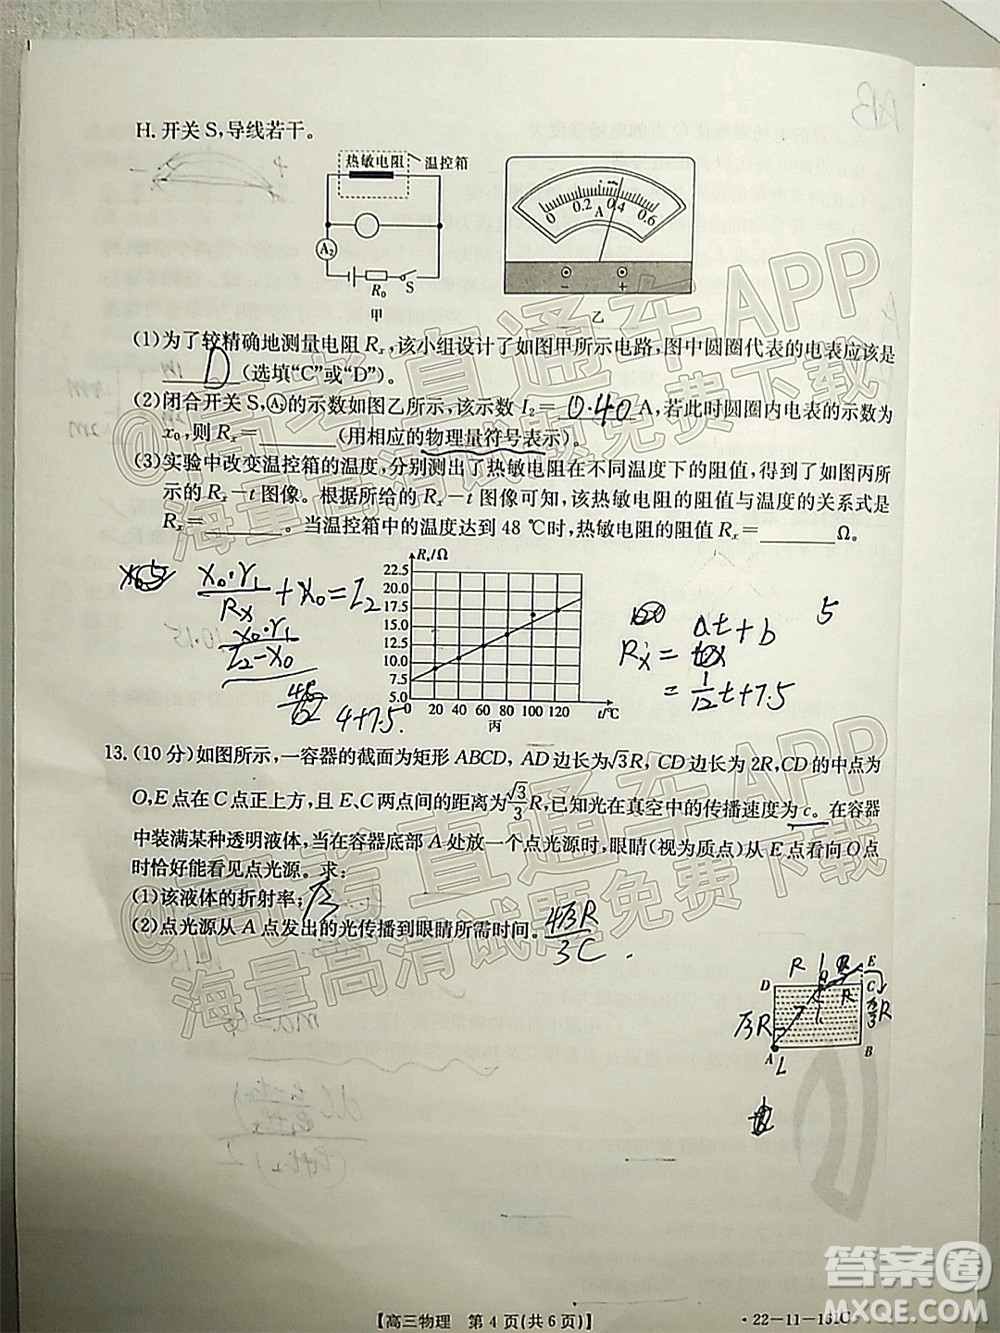 H. 开关 S,导线若干。
热敏电阻 温控箱
A₂
R₀ S
甲
0 0.2 0.4 0.6
A
- +
乙
(1)为了较精确地测量电阻 Rₓ,该小组设计了如图甲所示电路,图中圆圈代表的电表应该是
D (选填“C”或“D”)。
(2)闭合开关 S,Ⓐ的示数如图乙所示,该示数 I₂= 0.40 A,若此时圆圈内电表的示数为
x₀,则 Rₓ=________(用相应的物理量符号表示)。
(3)实验中改变温控箱的温度,分别测出了热敏电阻在不同温度下的阻值,得到了如图丙所
示的 Rₓ-t 图像。根据所给的 Rₓ-t 图像可知,该热敏电阻的阻值与温度的关系式是
Rₓ=________。当温控箱中的温度达到 48 ℃时,热敏电阻的阻值 Rₓ=________Ω。
x₀·r₁/Rx + x₀ = I₂
x₀·r₁/(I₂-x₀)
4+7.5
Rₓ/Ω
22.5
20.0
17.5
15.0
12.5
10.0
7.5
5.0
0 20 40 60 80 100 120 t/℃
丙
5
at+b
Rx =
= 1/12 t+7.5
13. (10 分)如图所示,一容器的截面为矩形 ABCD, AD 边长为√3R, CD 边长为 2R,CD 的中点为
O,E 点在 C 点正上方,且 E、C 两点间的距离为√3/3 R,已知光在真空中的传播速度为 c。在容器
中装满某种透明液体,当在容器底部 A 处放一个点光源时,眼睛(视为质点)从 E 点看向 O 点
时恰好能看见点光源。求:
(1)该液体的折射率; √3
(2)点光源从 A 点发出的光传播到眼睛所需时间。 4√3R/3C
R E
D C
R
√3R √3/3 R
A B
@高考直通车APP
海量高清试题免费下载
@高考直通车APP
海量高清试题免费下载
【高三物理 第 4 页(共 6 页)】
·22-11-131C·
答案圈
MXQE.COM